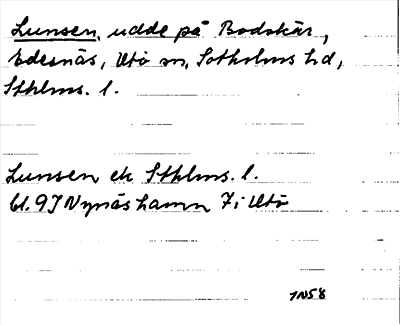 Lunsen, udde på Bodskär,
Edesnäs, Utö sn, Sotholms hd,
Sthlms. l.
Lunsen ek Sthlms. l.
bl. 9J Nynäshamn 7i Utö
1N58